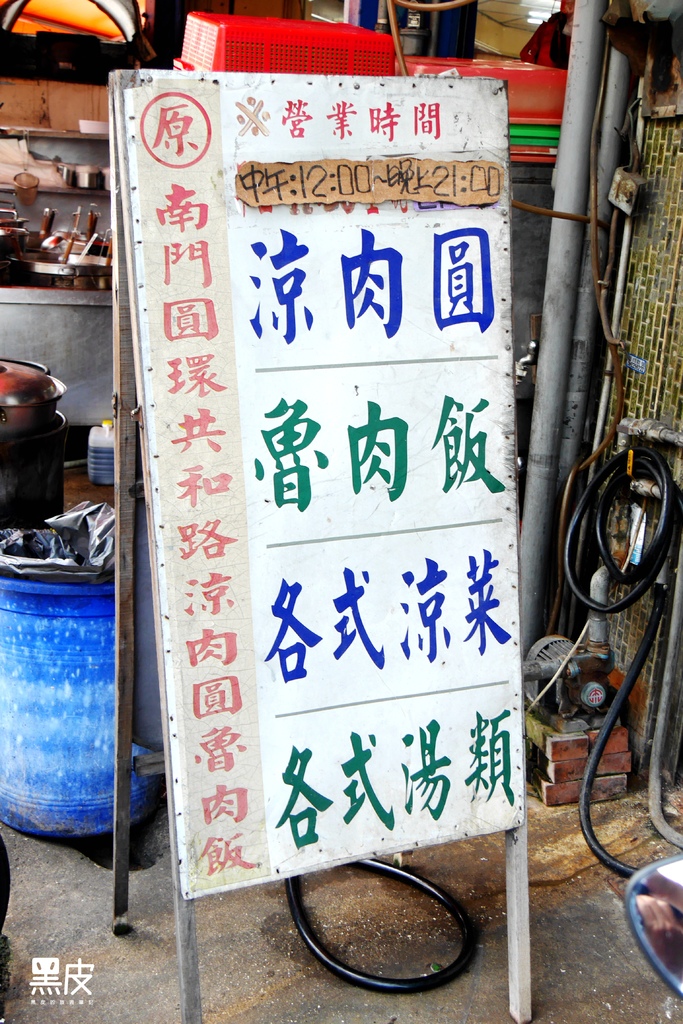 原南門圓環共和路涼肉圓魯肉飯
※營業時間
中午:12:00~晚上21:00
涼肉圓
魯肉飯
各式涼菜
各式湯類
黑皮